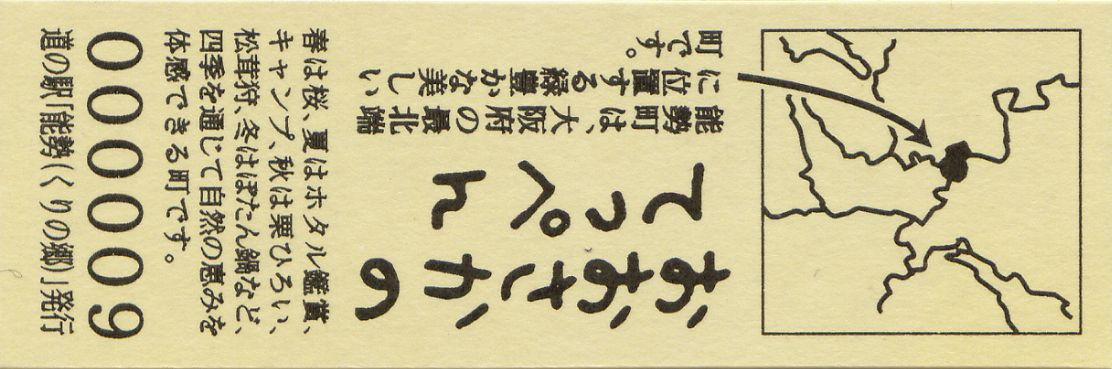 おおさかの
てっぺん
能勢町は、大阪府の最北端
に位置する緑豊かな美しい
町です。
春は桜、夏はホタル鑑賞、
キャンプ、秋は栗ひろい、
松茸狩、冬はぼたん鍋など、
四季を通じて自然の恵みを
体感できる町です。
000009
道の駅「能勢(くりの郷)」発行